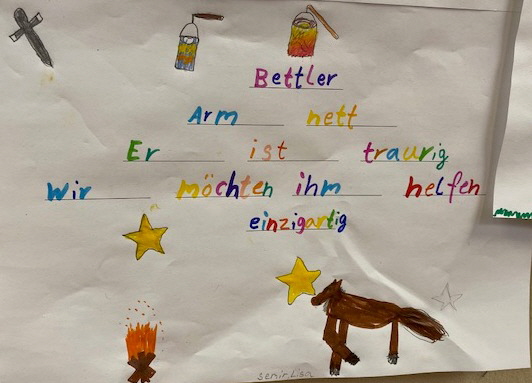 Bettler
Arm nett
Er ist traurig
Wir möchten ihm helfen
einzigartig
semir, Lisa